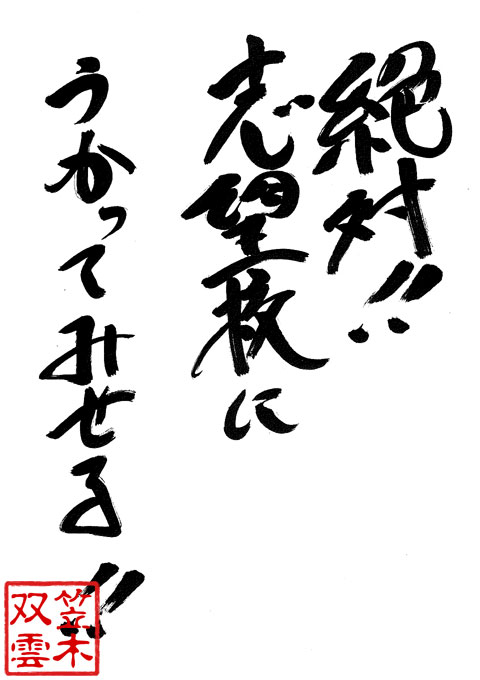 絶対!!
志望校に
うかってみせる!!
笠木
双雲